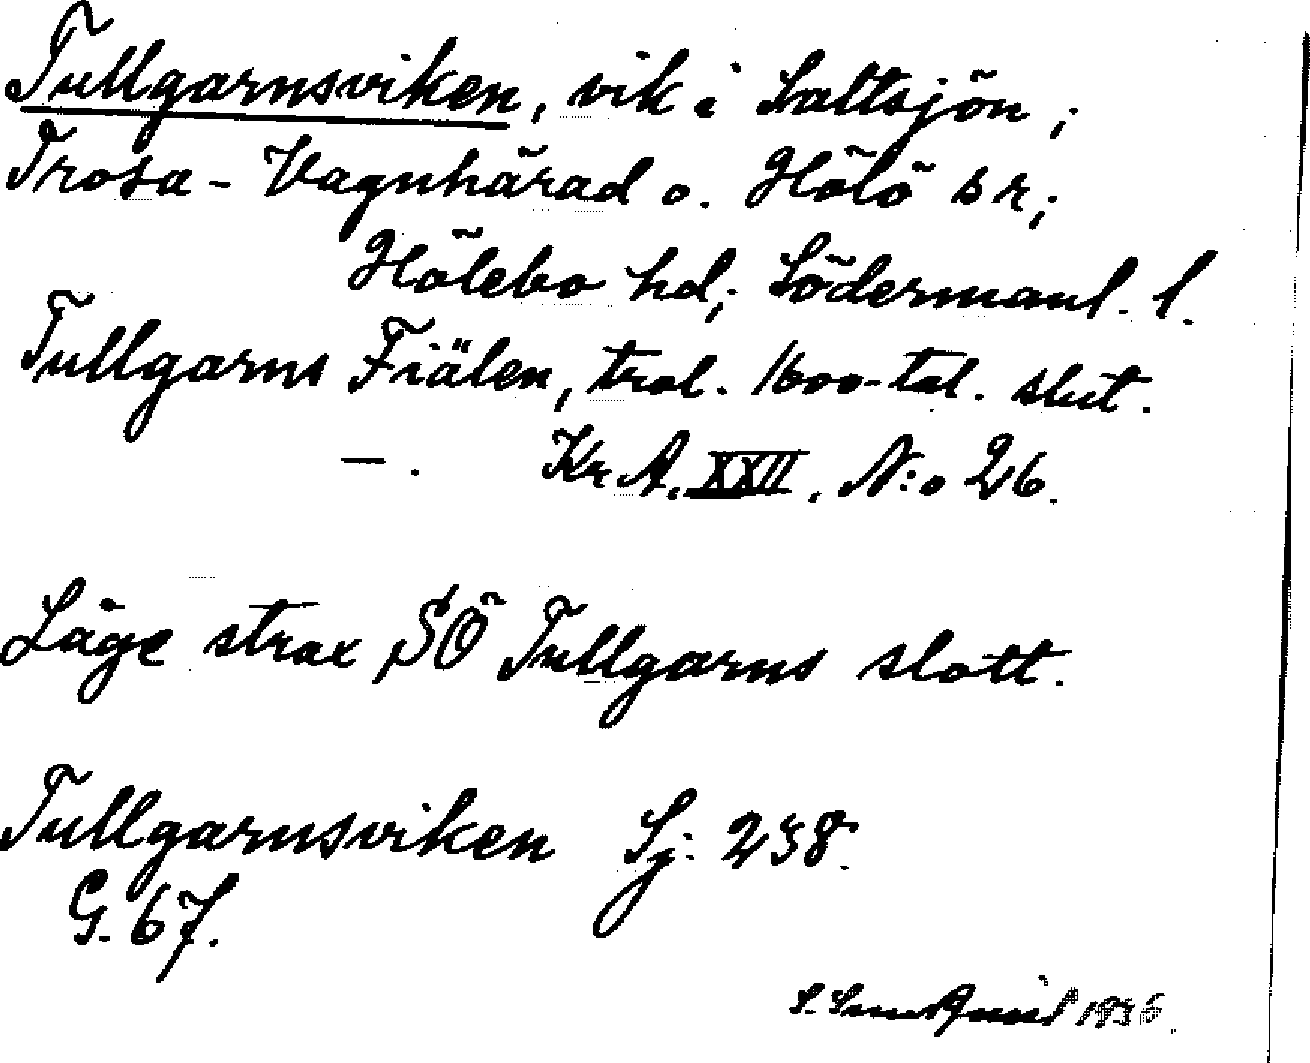 Tullgarnsviken, vik i Saltsjön,
Trosa-Vagnhärad o. Hölö sr;
Hölebo hd; Södermanl. l.
Tullgarns Fiälen, trol. 1600-tal. slut.
—. Kr. A. XXII. N:o 26.
Läge strax SÖ Tullgarns slott.
Tullgarnsviken Sj. 238.
G. 67.
S. 1936.